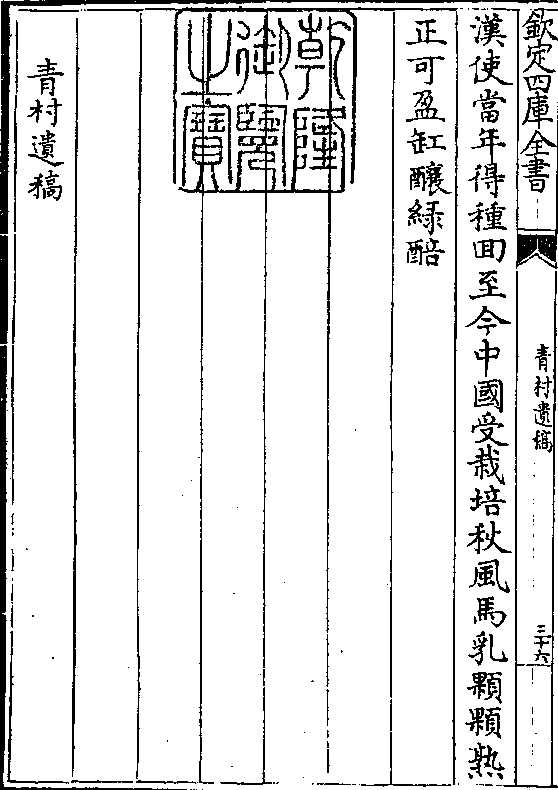 欽定四庫全書
青村遺稿
三十六
漢使當年得種囬至今中國受栽培秋風馬乳顆顆熟
正可盈缸釀緑醅
乾隆
御覽
之寶
青村遺稿